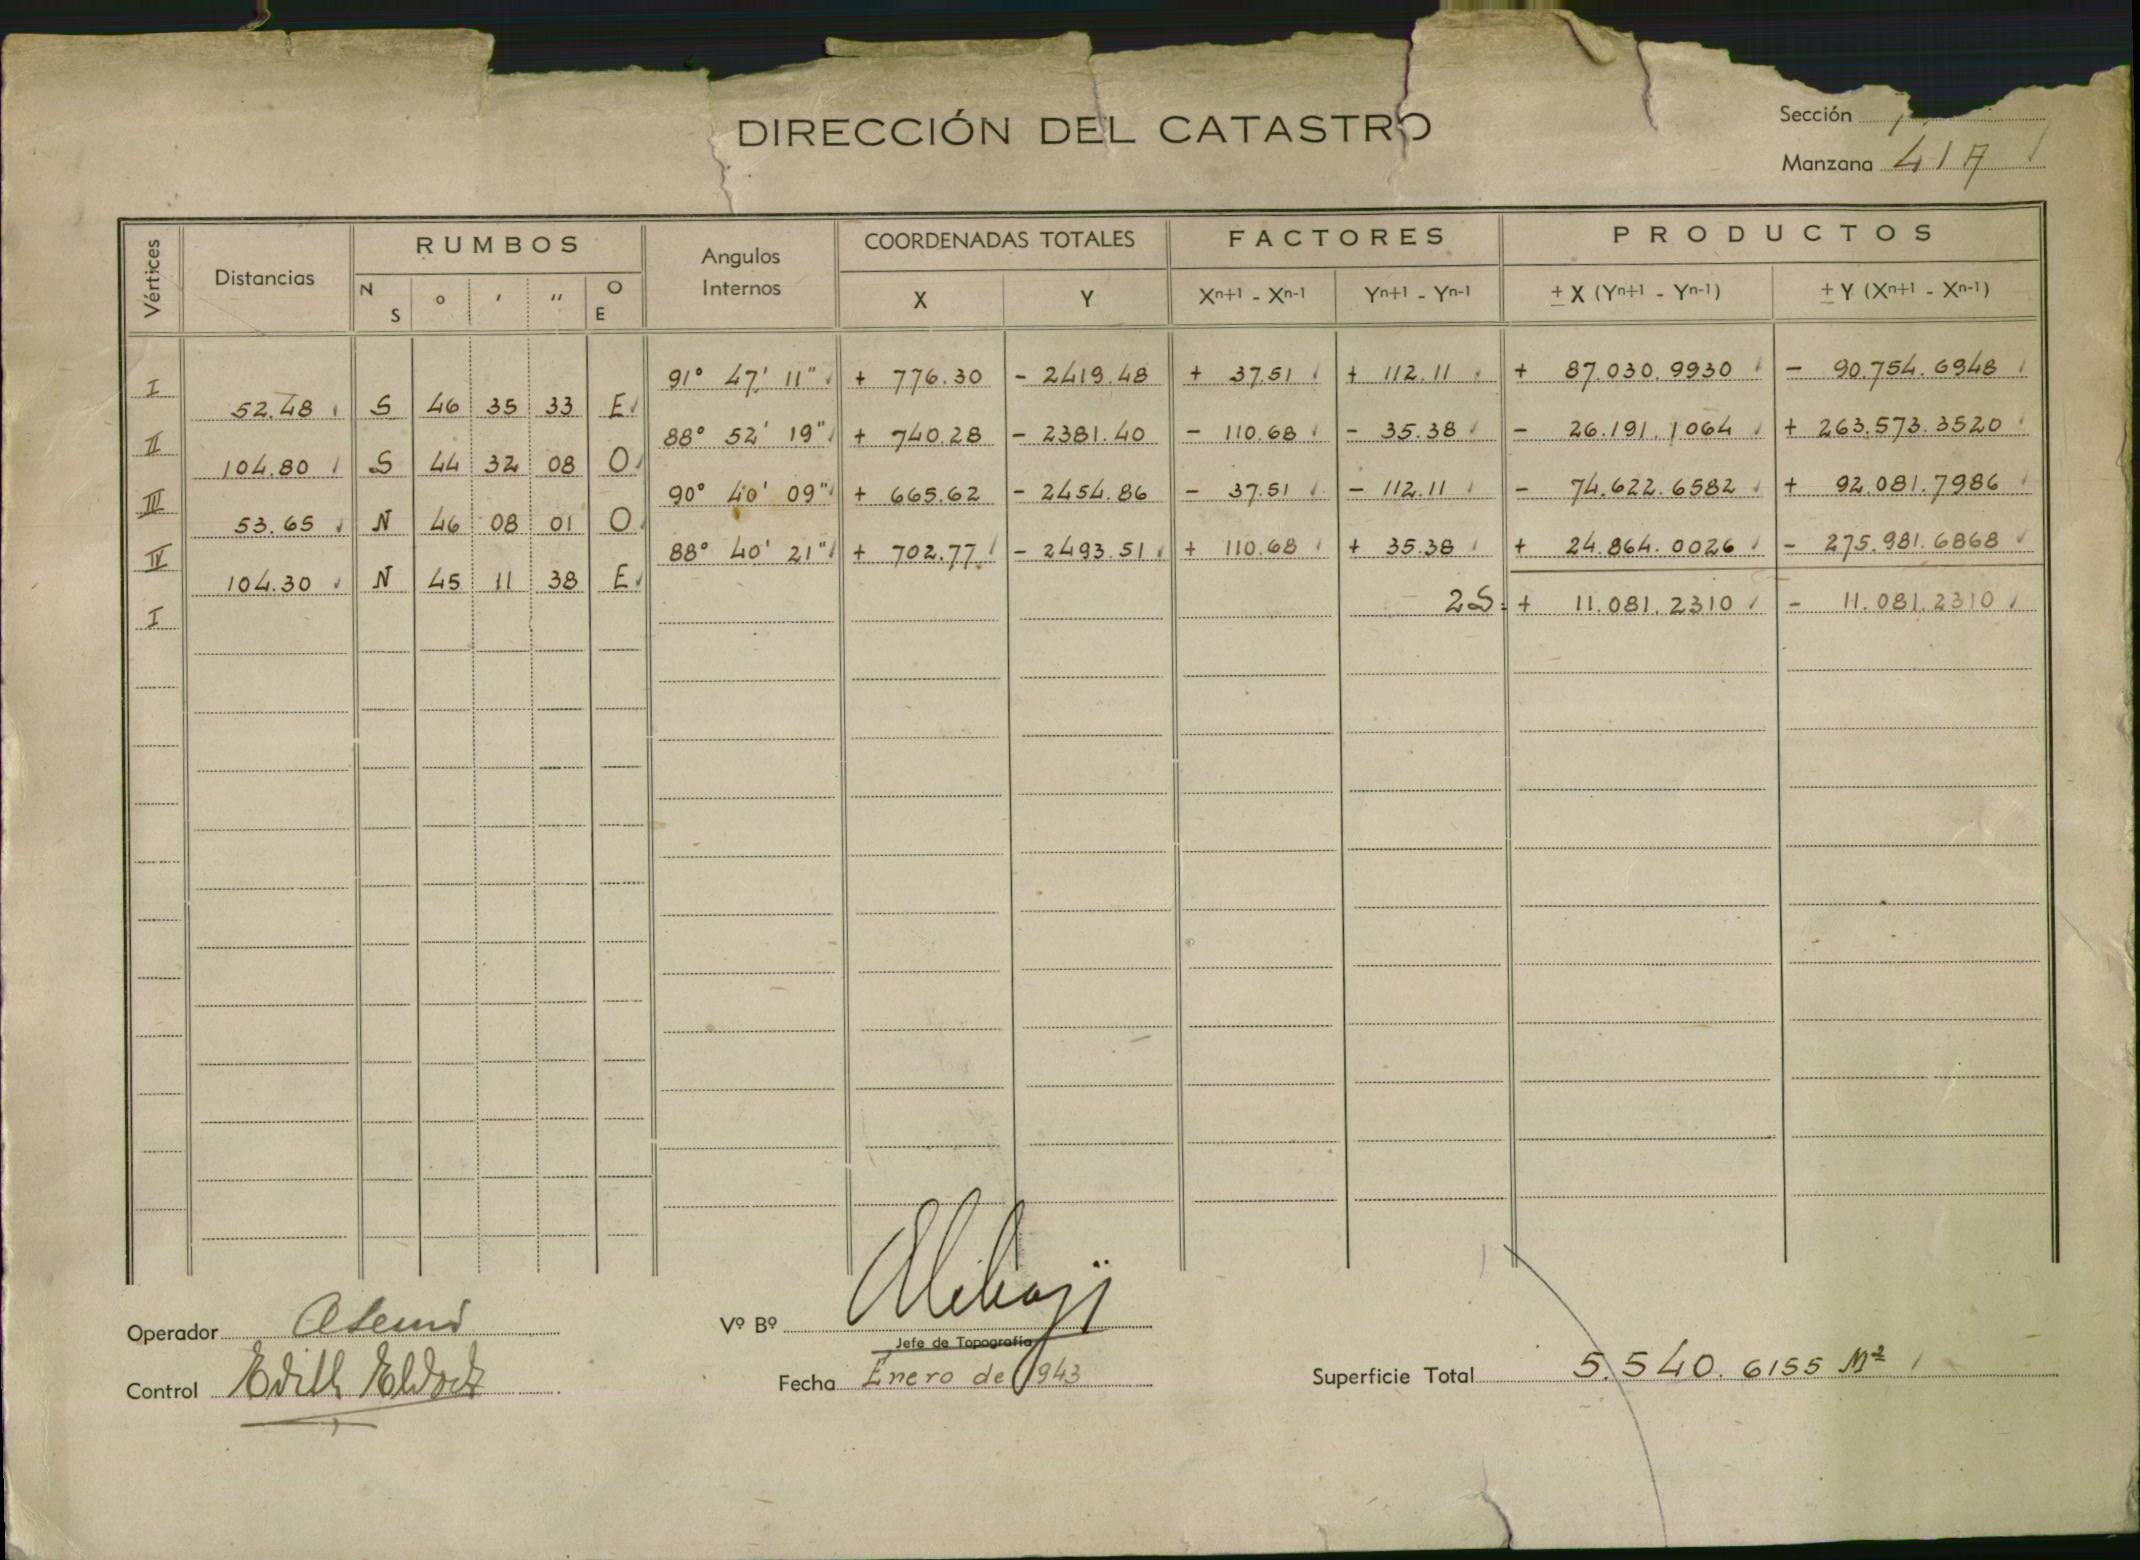 DIRECCIÓN DEL CATASTRO
Sección
Manzana 41A
Vértices Distancias RUMBOS Angulos Internos COORDENADAS TOTALES FACTORES PRODUCTOS
N S o ' " O E X Y Xn+1 - Xn-1 Yn+1 - Yn-1 ± X (Yn+1 - Yn-1) ± Y (Xn+1 - Xn-1)
I 91° 47' 11" + 776.30 - 2419.48 + 37.51 + 112.11 + 87.030.9930 - 90.754.6948
52.48 S 46 35 33 E
II 88° 52' 19" + 740.28 - 2381.40 - 110.68 - 35.38 - 26.191.1064 + 263.573.3520
104.80 S 44 32 08 O
III 90° 40' 09" + 665.62 - 2454.86 - 37.51 - 112.11 - 74.622.6582 + 92.081.7986
53.65 N 46 08 01 O
IV 88° 40' 21" + 702.77 - 2493.51 + 110.68 + 35.38 + 24.864.0026 - 275.981.6868
104.30 N 45 11 38 E
I 2S: + 11.081.2310 - 11.081.2310
Operador
Vº Bº
Jefe de Topografía
Control Edith
Fecha Enero de 1943
Superficie Total 5.540.6155 M²